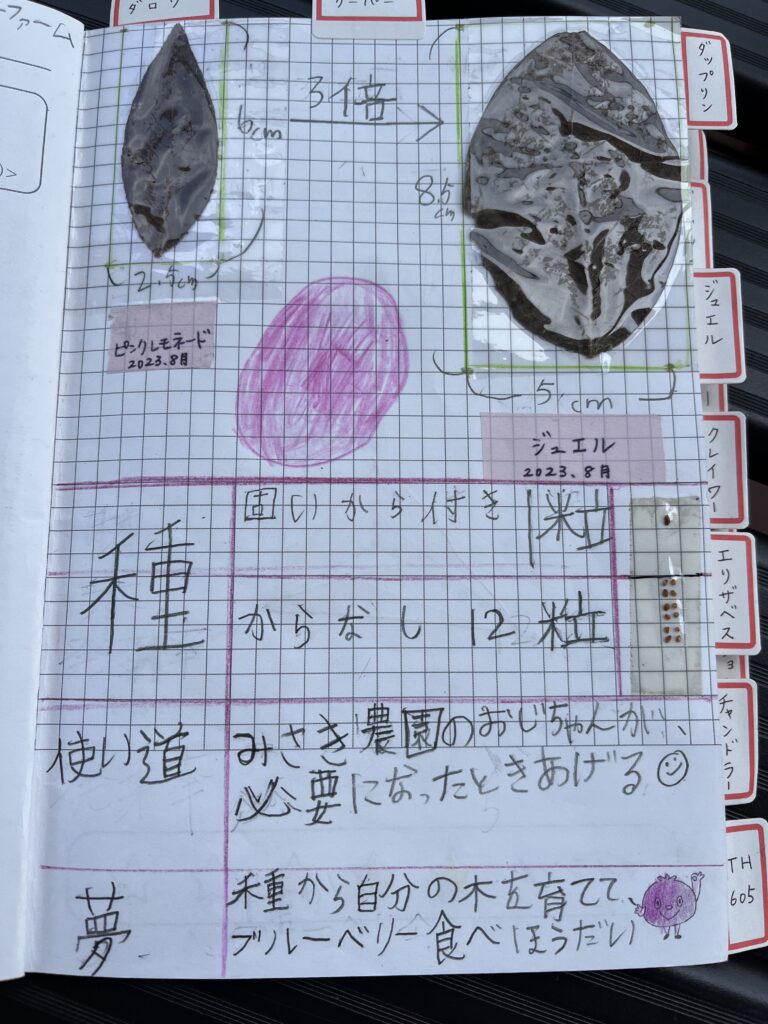 ファーム
ダロウ
ダップリン
3倍
6cm
2.5cm
8.5
cm
5cm
ピンクレモネード
2023.8月
ジュエル
2023.8月
ジュエル
クレイワー
エリザベス
チャンドラー
TH
605
種
固いから付き 1粒
からなし 12粒
使い道
みさき農園のおじちゃんが、
必要になったときあげる
夢
種から自分の木を育てて、
ブルーベリー食べほうだい